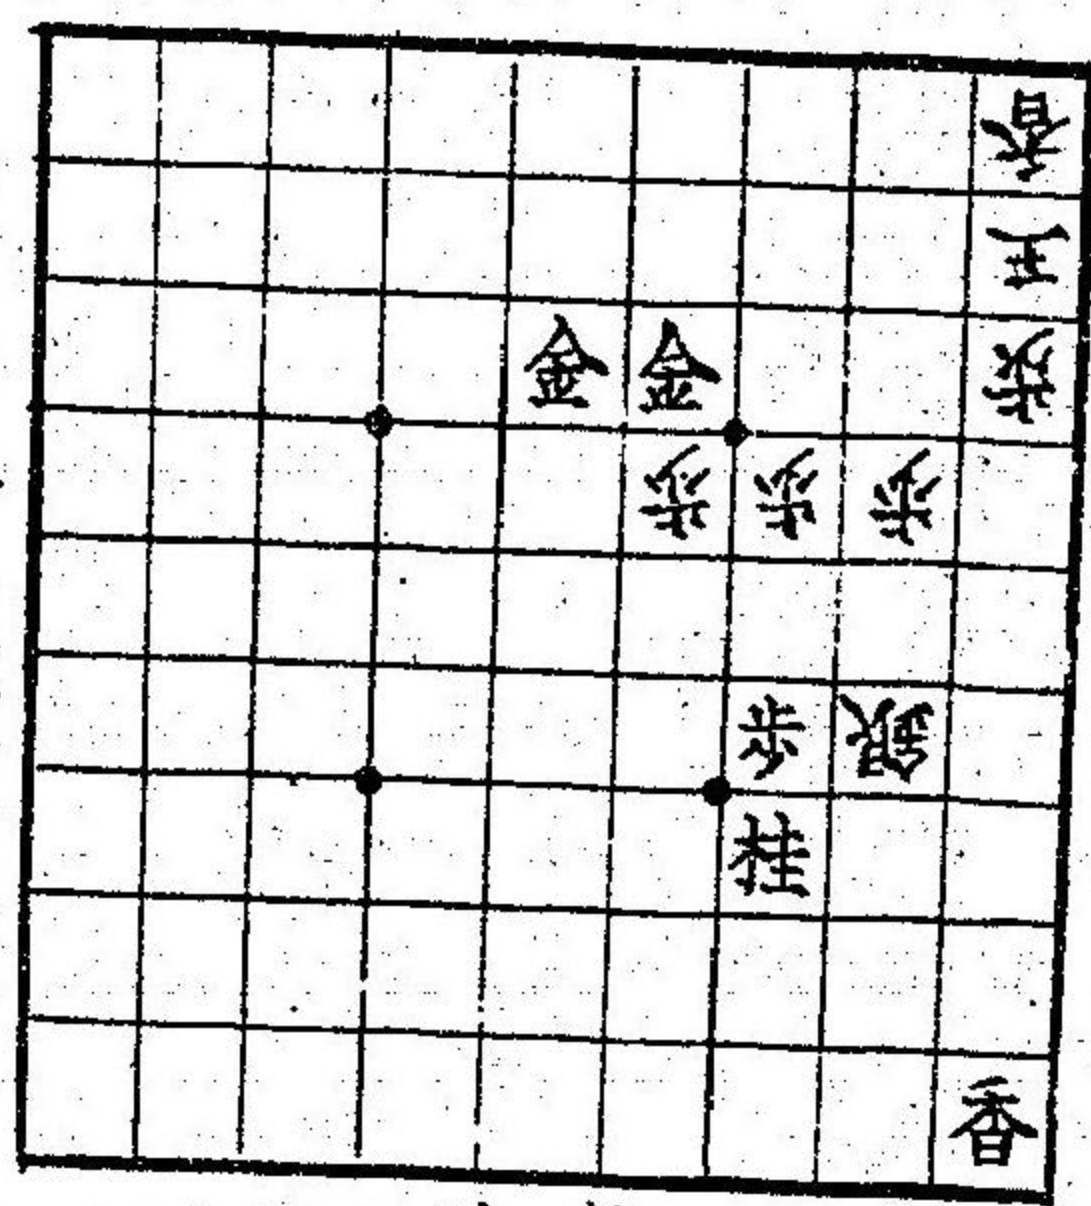 香
王
金 金 歩
歩 歩 歩
歩 銀
桂
香